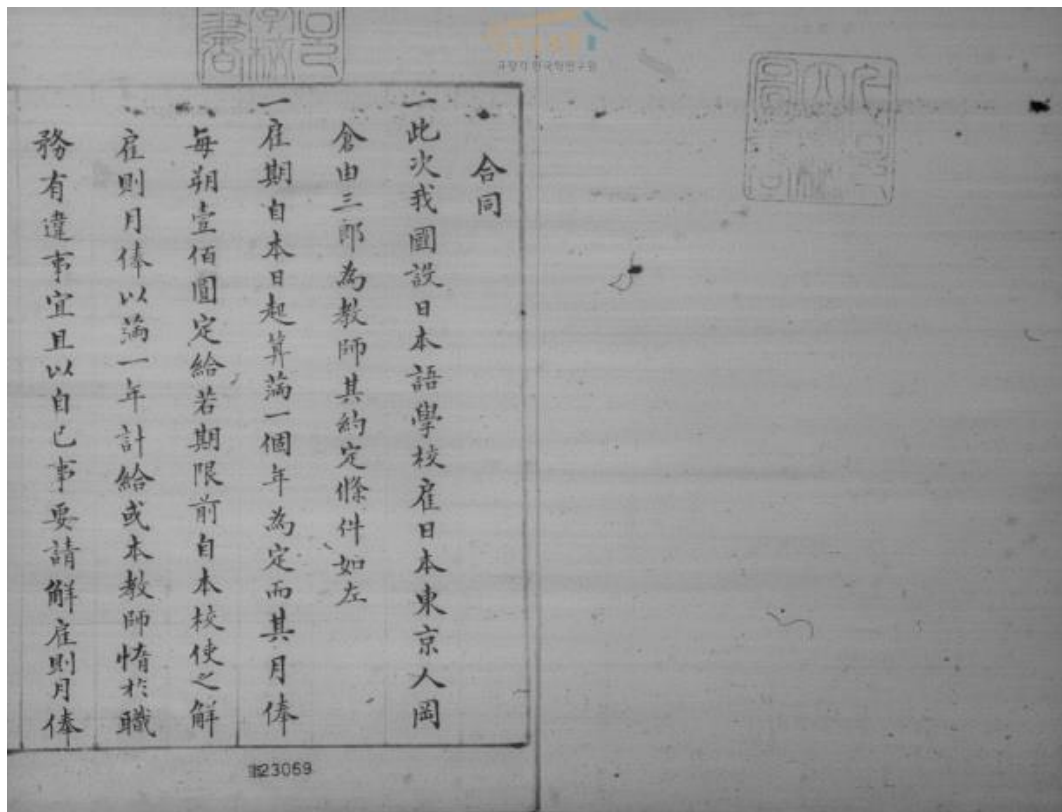 合同
一此次我國設日本語學校雇日本東京人岡
倉由三郎為教師其約定條件如左
一雇期自本日起算滿一個年為定而其月俸
每朔壹佰圓定給若期限前自本校使之解
雇則月俸以滿一年計給或本教師惰於職
務有違事宜且以自己事要請解雇則月俸
규장각한국학연구원
23059